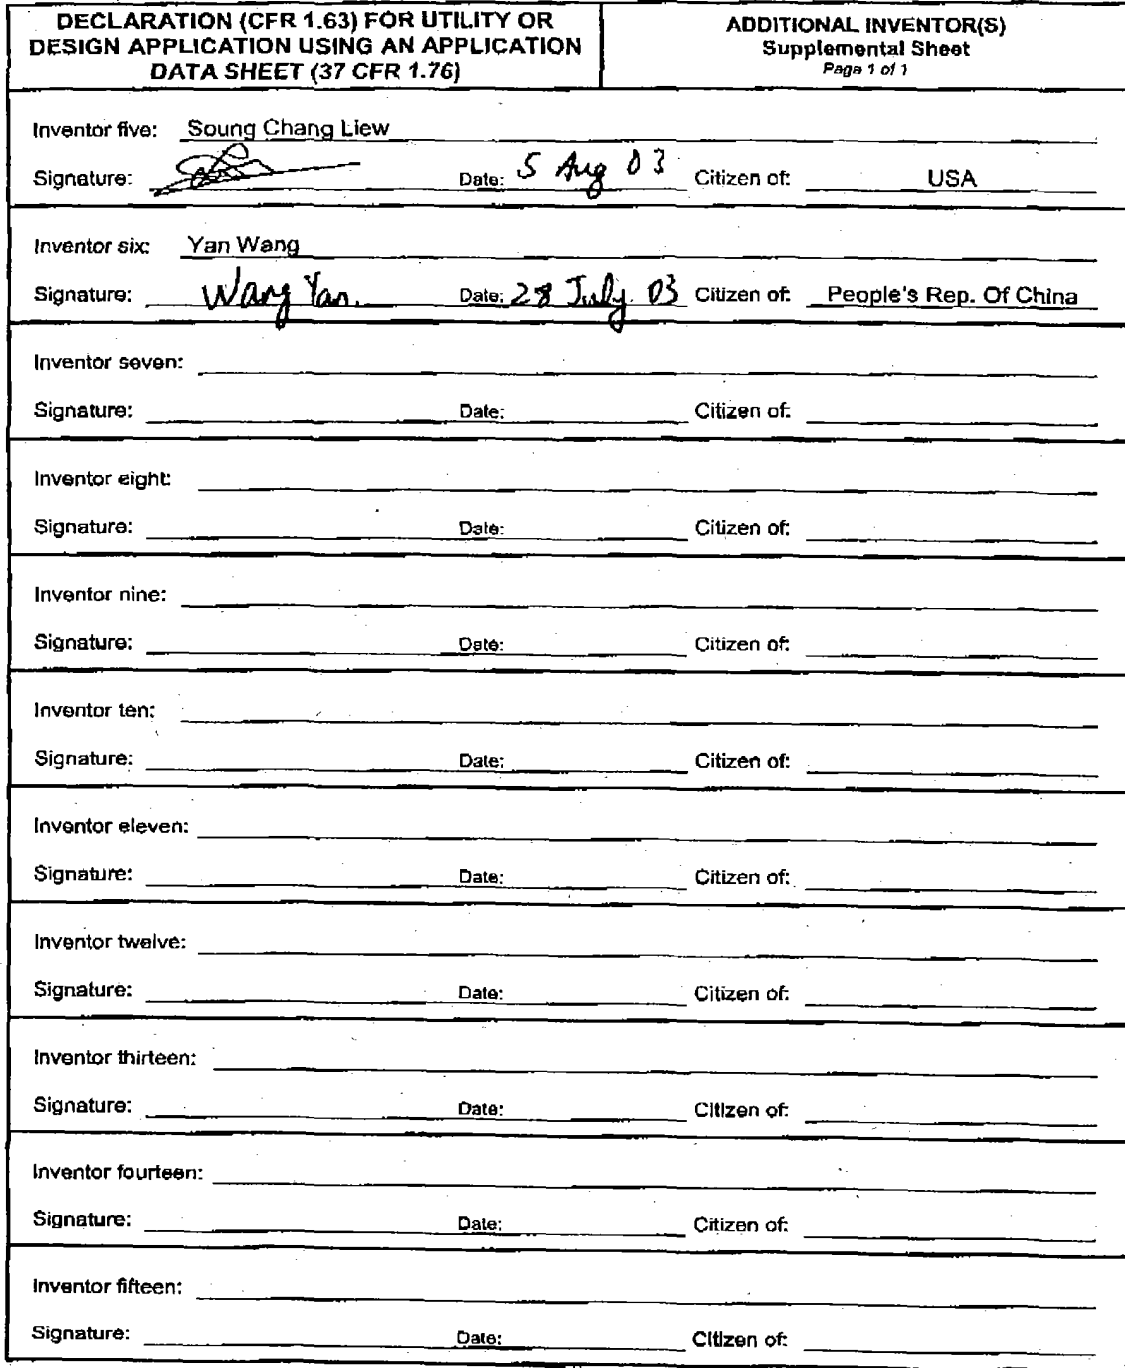 DECLARATION (CFR 1.63) FOR UTILITY OR
DESIGN APPLICATION USING AN APPLICATION
DATA SHEET (37 CFR 1.76)
ADDITIONAL INVENTOR(S)
Supplemental Sheet
Page 1 of 1
Inventor five: Soung Chang Liew
Signature: Date: 5 Aug 03 Citizen of: USA
Inventor six: Yan Wang
Signature: Wang Yan. Date: 28 July. 03 Citizen of: People's Rep. Of China
Inventor seven:
Signature: Date: Citizen of:
Inventor eight:
Signature: Date: Citizen of:
Inventor nine:
Signature: Date: Citizen of:
Inventor ten:
Signature: Date: Citizen of:
Inventor eleven:
Signature: Date: Citizen of:
Inventor twelve:
Signature: Date: Citizen of:
Inventor thirteen:
Signature: Date: Citizen of:
Inventor fourteen:
Signature: Date: Citizen of:
Inventor fifteen:
Signature: Date: Citizen of: